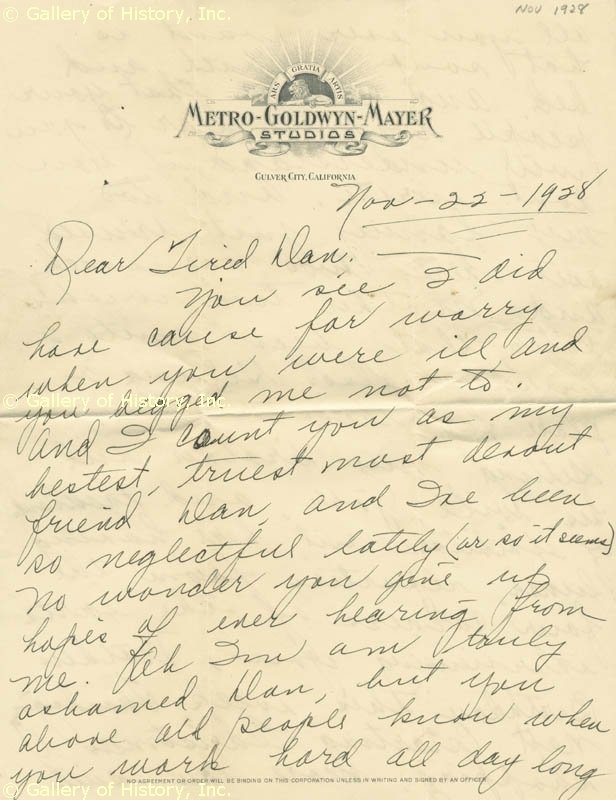 © Gallery of History, Inc.
NOV 1928
ARS GRATIA ARTIS
METRO-GOLDWYN-MAYER
STUDIOS
CULVER CITY, CALIFORNIA
Nov-22-1928
Dear Tired Dan. —
You see I did
have cause for worry
when you were ill, and
you begged me not to.
© Gallery of History, Inc.
And I count you as my
bestest, truest most devout
friend Dan, and I've been
so neglectful lately (or so it seems)
© Gallery of History, Inc.
no wonder you give up
hopes of ever hearing from
me. I'm am truly
ashamed Dan, but you
above all people know when
you work hard all day long
NO AGREEMENT OR ORDER WILL BE BINDING ON THIS CORPORATION UNLESS IN WRITING AND SIGNED BY AN OFFICER
© Gallery of History, Inc.